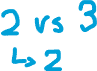 2 vs 3
↳ 2